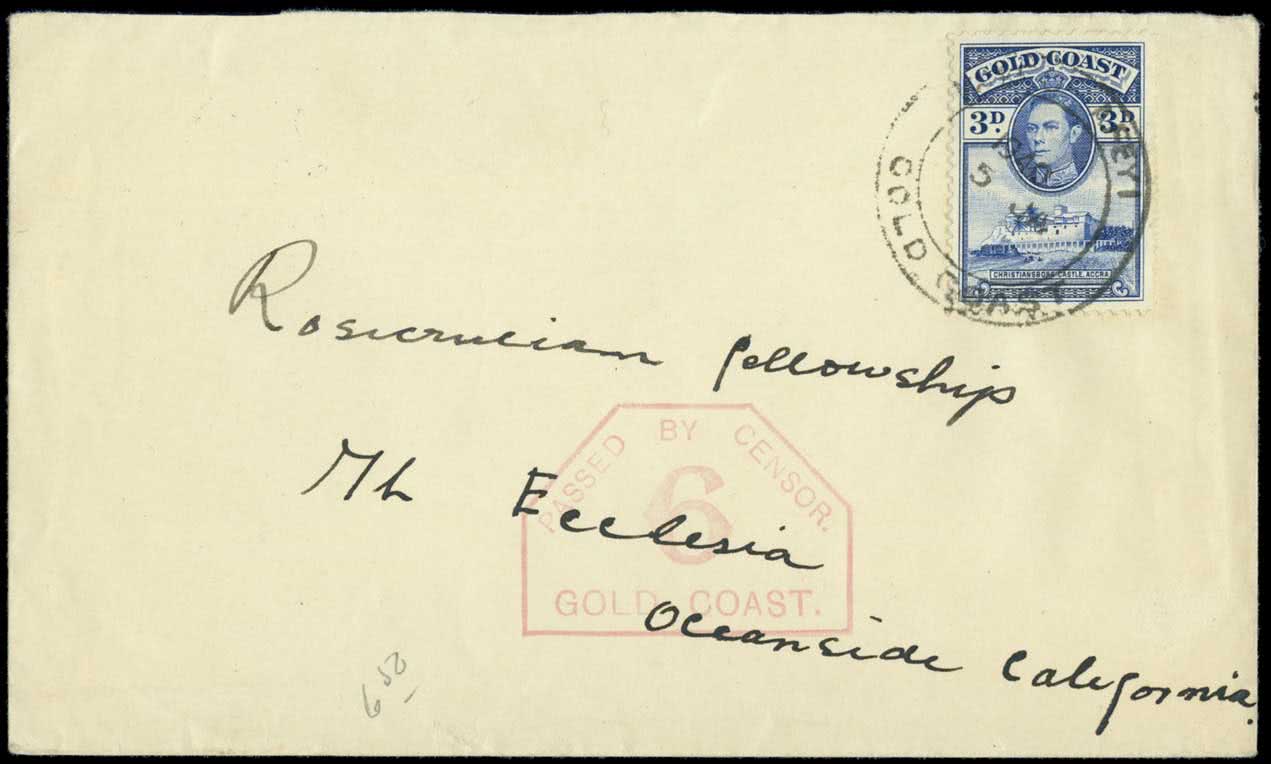 GOLD COAST
3D 3D
CHRISTIANSBORG CASTLE, ACCRA
5
GOLD COAST
Rosicrucian Fellowship
Mt Ecclesia
Oceanside California.
PASSED BY CENSOR.
6
GOLD COAST.
6 50